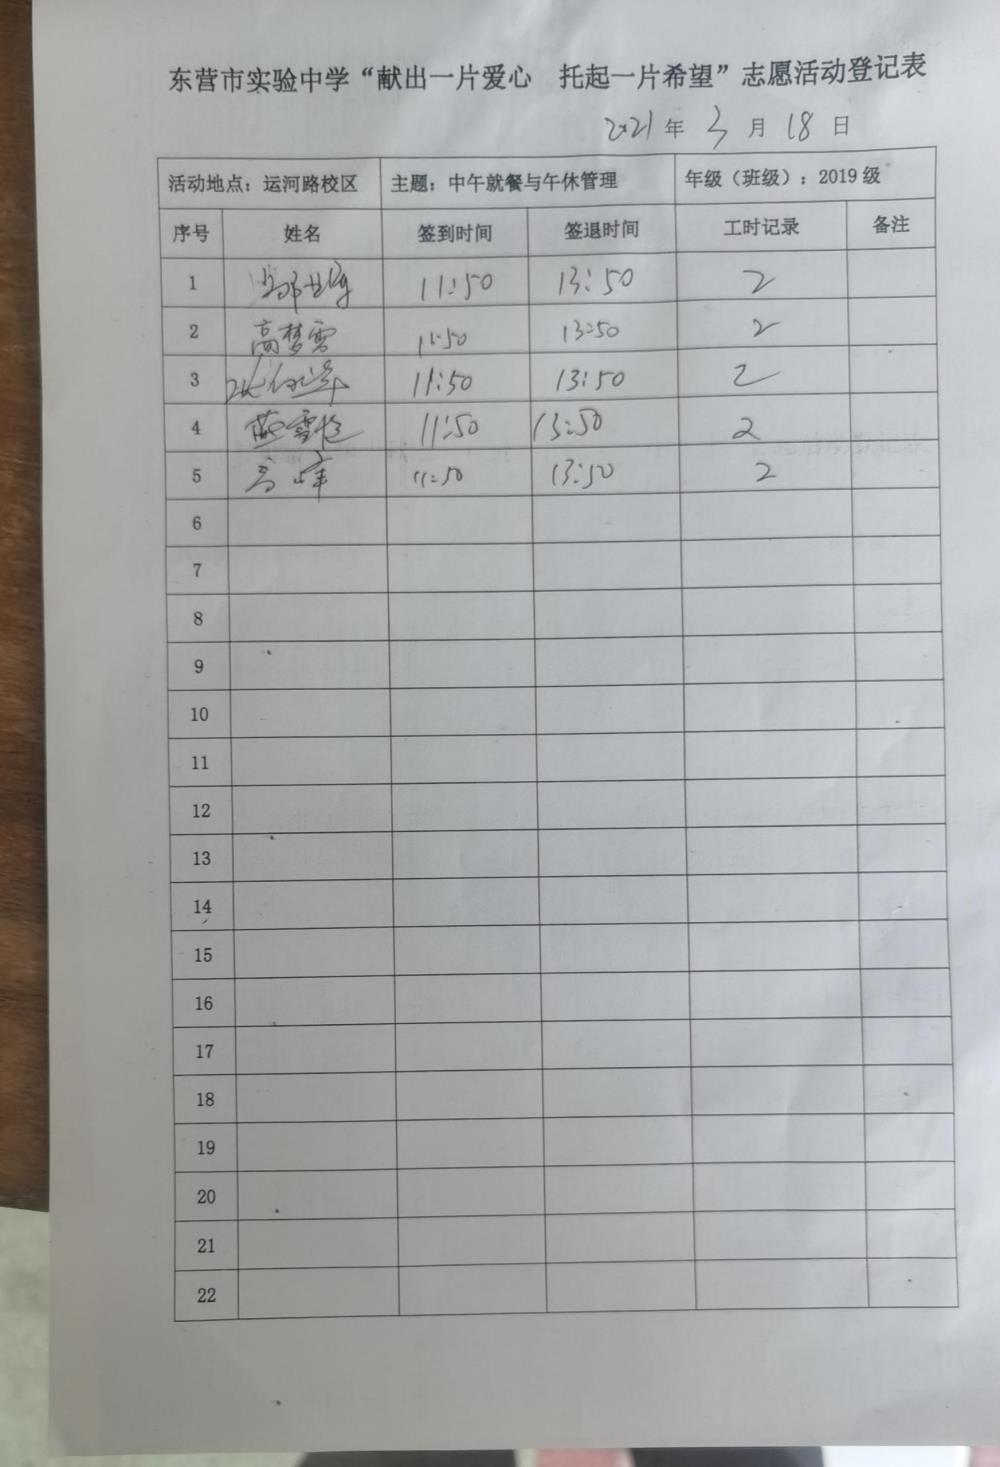 东营市实验中学“献出一片爱心 托起一片希望”志愿活动登记表
2021年3月18日
活动地点：运河路校区 主题：中午就餐与午休管理 年级（班级）：2019级
序号 姓名 签到时间 签退时间 工时记录 备注
1 11:50 13:50 2
2 高梦雪 11:50 13:50 2
3 11:50 13:50 2
4 11:50 13:50 2
5 高峰 11:50 13:50 2
6
7
8
9
10
11
12
13
14
15
16
17
18
19
20
21
22